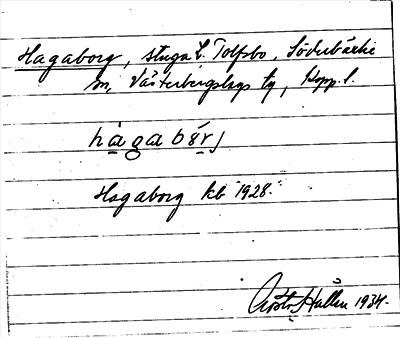 Hagaborg, stuga i Tolfsbo, Söderbärke
sn, Västerbergslags tg, Kopp. l.
hagabörj
Hagaborg kb 1928.
Gösta Hallén 1934.